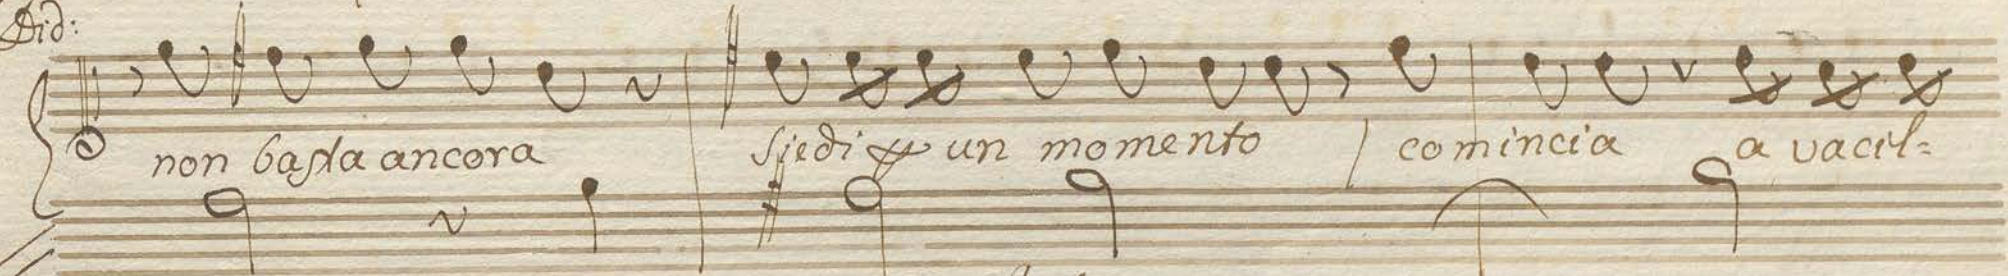 Did:
non basta ancora siedi p un momento comincia a vacil=